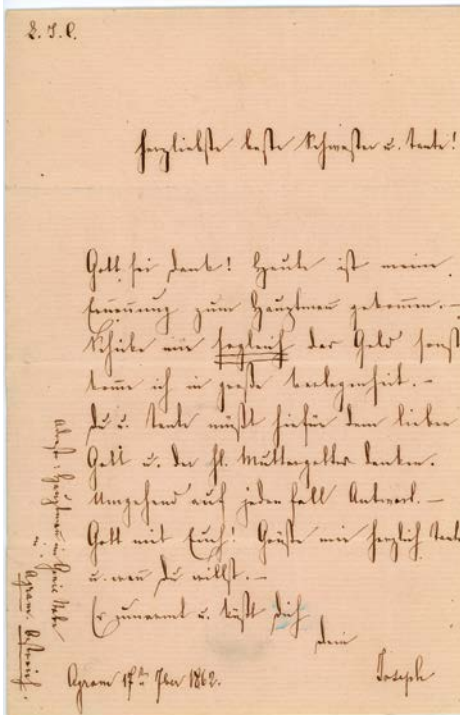 L. J. C.
Herzliebste beste Schwester u. Tante!
Gott sei Dank! Heute ist meine
Ernennung zum Hauptman gekommen.—
Schicke mir sogleich das Geld sonst
komme ich in große Verlegenheit.—
Du u. Tante müßt hiefür dem lieben
Gott u. der hl. Muttergottes danken.
Umgehend auf jeden Fall Antwort.—
Gott mit Euch! Grüße mir herzlich Tante
u. wen Du willst.—
Es umarmt u. küßt Dich
Dein
Joseph
Agram 17ten 7ber 1862.
Adresse: Hauptman im Genie Stabe
in
Agram. Östreich.